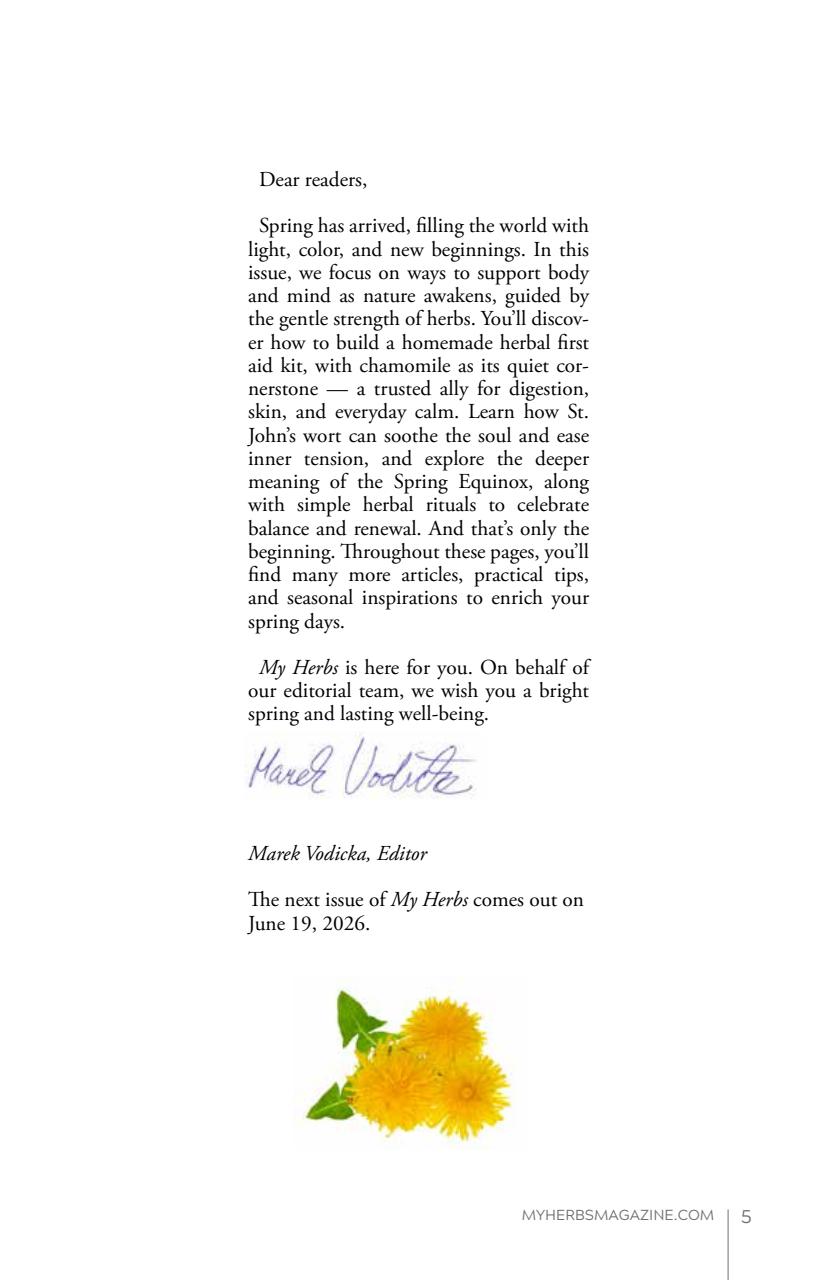 Dear readers,
Spring has arrived, filling the world with
light, color, and new beginnings. In this
issue, we focus on ways to support body
and mind as nature awakens, guided by
the gentle strength of herbs. You’ll discov-
er how to build a homemade herbal first
aid kit, with chamomile as its quiet cor-
nerstone — a trusted ally for digestion,
skin, and everyday calm. Learn how St.
John’s wort can soothe the soul and ease
inner tension, and explore the deeper
meaning of the Spring Equinox, along
with simple herbal rituals to celebrate
balance and renewal. And that’s only the
beginning. Throughout these pages, you’ll
find many more articles, practical tips,
and seasonal inspirations to enrich your
spring days.
My Herbs is here for you. On behalf of
our editorial team, we wish you a bright
spring and lasting well-being.
Marek Vodicka
Marek Vodicka, Editor
The next issue of My Herbs comes out on
June 19, 2026.
MYHERBSMAGAZINE.COM 5